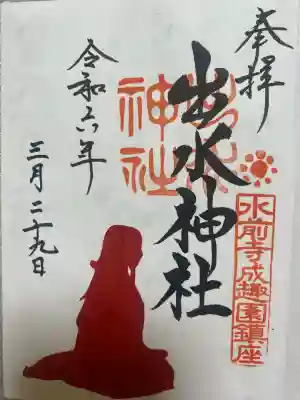 奉拝
水前寺成趣園鎮座
出水神社
令和六年
三月二十九日